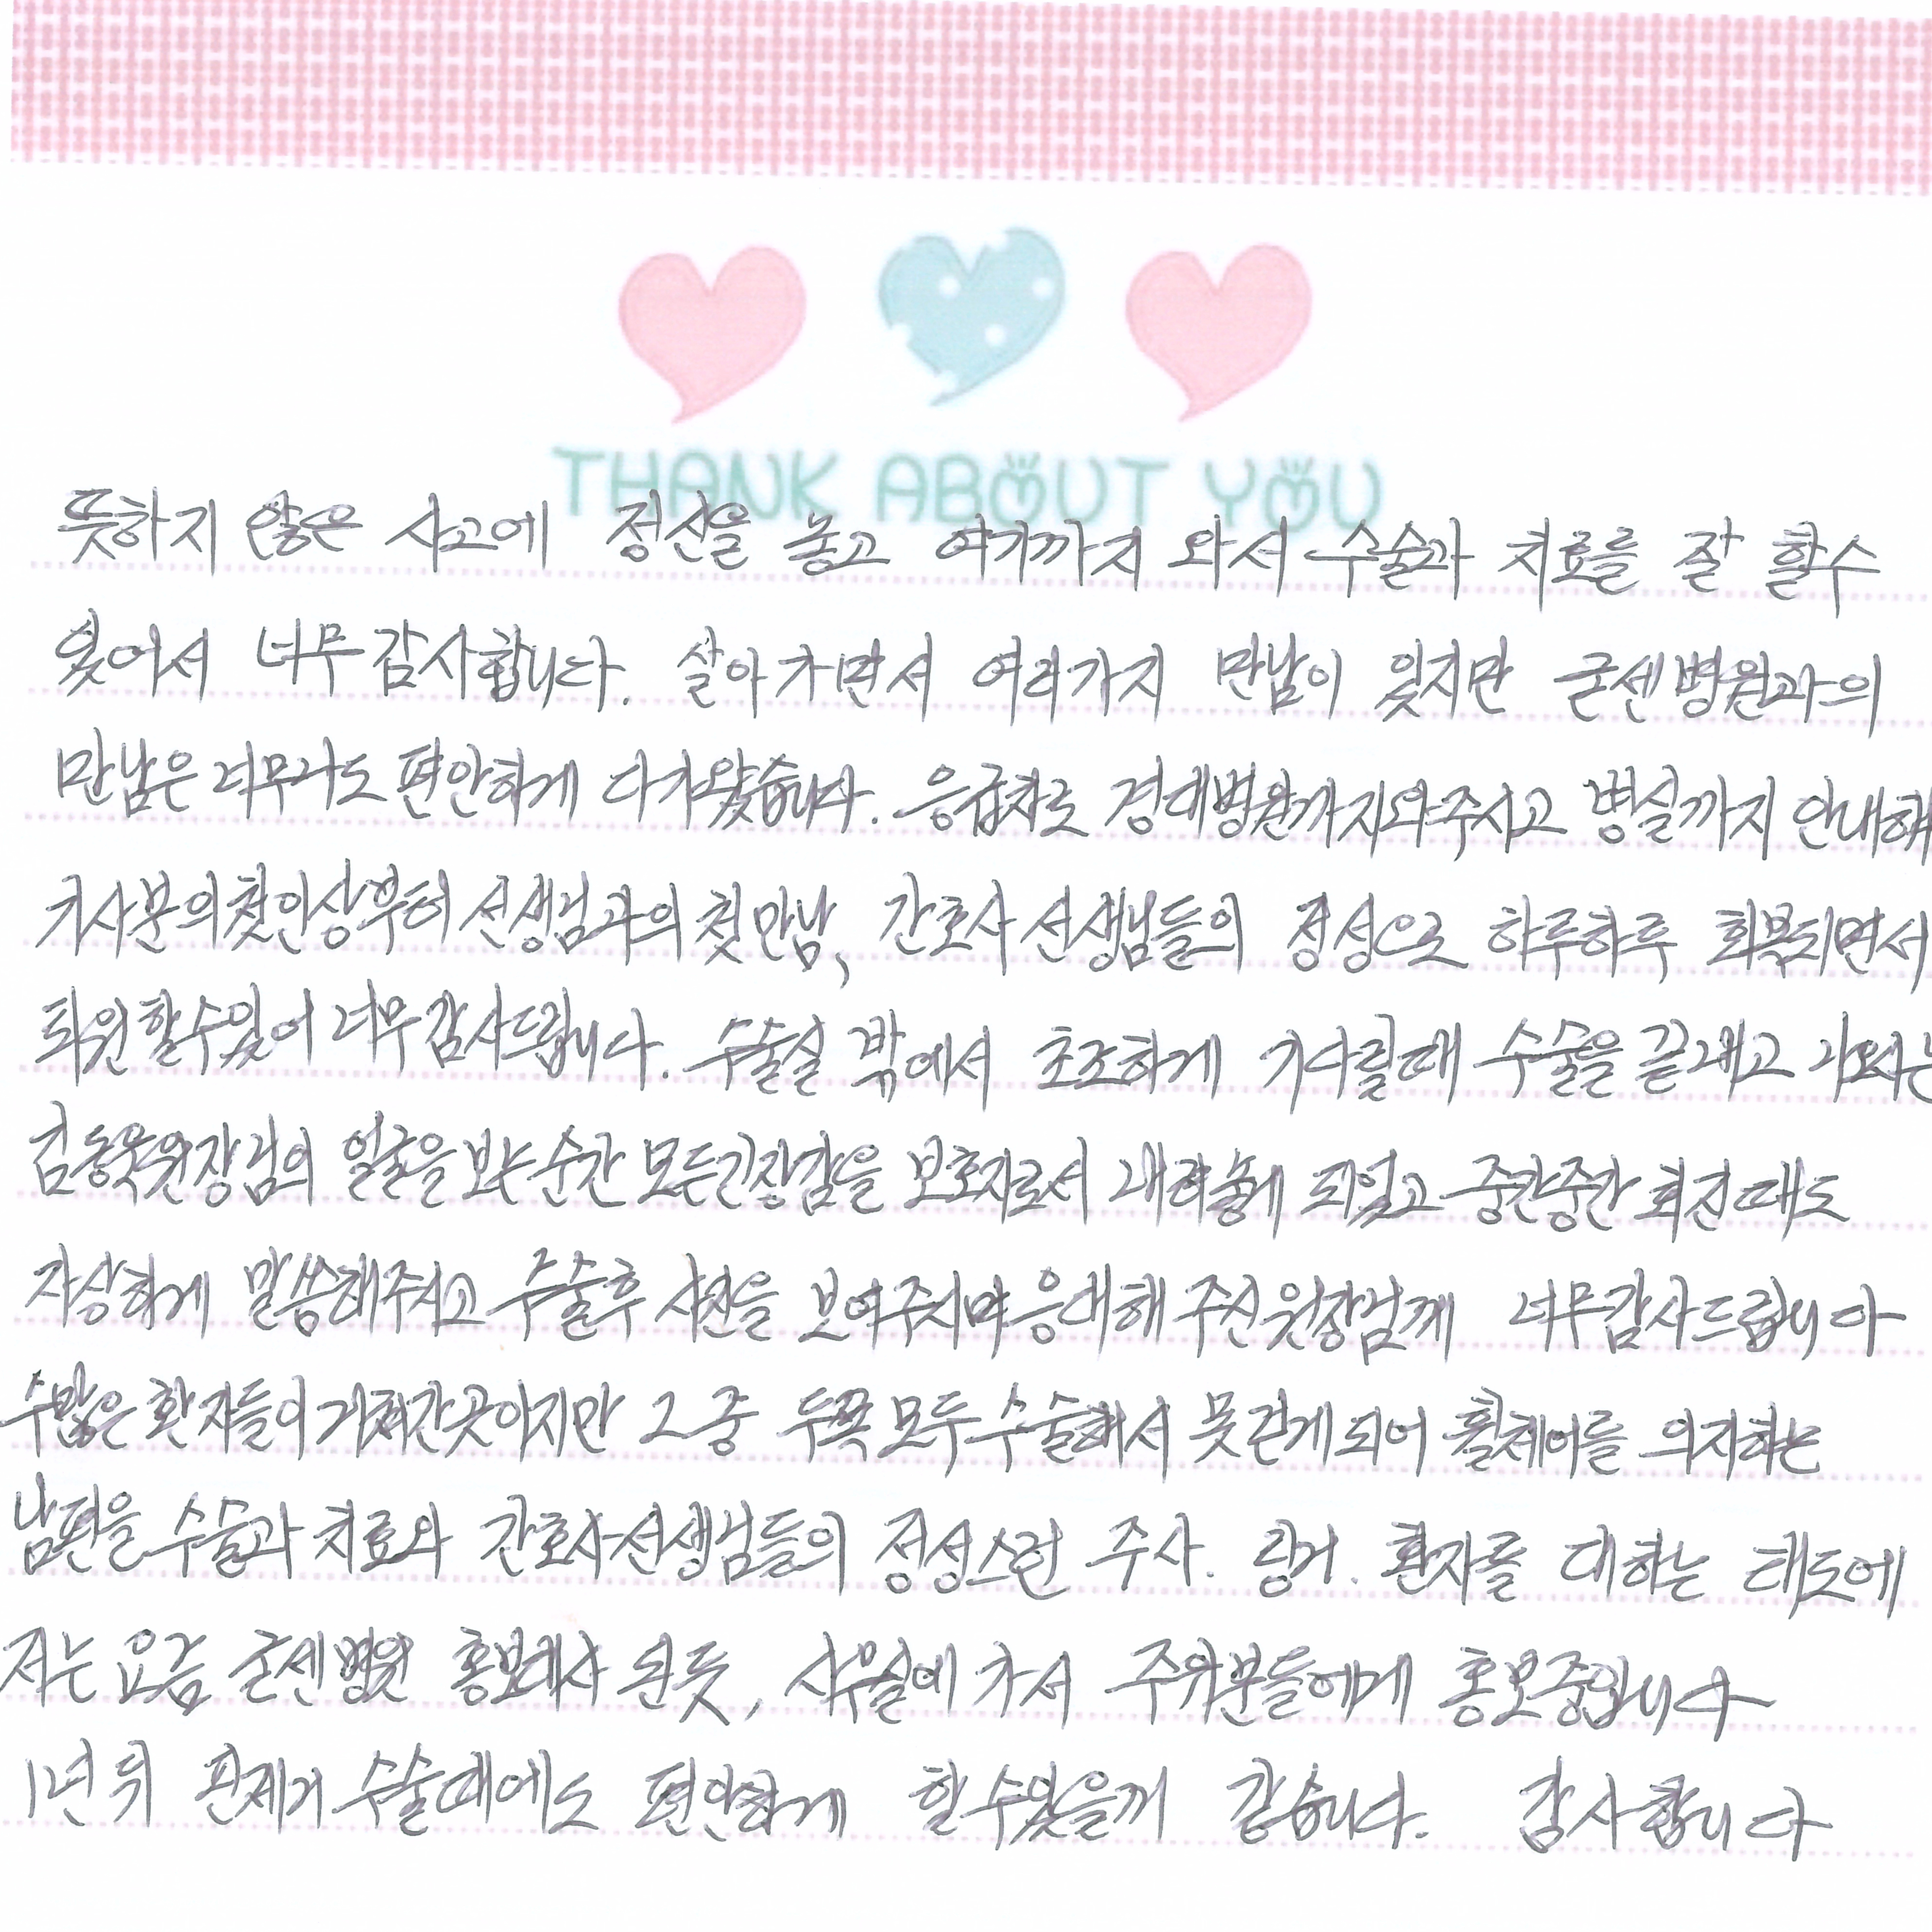 THANK ABOUT YOU
뜻하지 않은 사고에 정신을 놓고 여기까지 와서 수술과 치료를 잘 할수
있어서 너무 감사합니다. 살아가면서 여러가지 만남이 있지만 굳센병원과의
만남은 너무나도 편안하게 다가왔습니다. 응급차로 경대병원까지와주시고 병실까지 안내해
기사분의첫인상부터 선생님과의 첫만남, 간호사 선생님들의 정성으로 하루하루 회복되면서
퇴원할수있어 너무감사드립니다. 수술실 밖에서 초조하게 기다릴때 수술을 끝내고 나오시는
원장님의 얼굴을 보는순간 모든긴장감을 보호자로서 내려놓게 되었고 중간중간 회진때도
자상하게 말씀해주시고 수술후 사진을 보여주시며응대해 주신원장님께 너무감사드립니다
수많은 환자들이 거쳐간곳이지만 그중 두쪽모두수술해서 못걷게되어 휠체어를 의지하는
남편을 수술과 치료와 간호사선생님들의 정성스런 주사. 링거. 환자를 대하는 태도에
저는 요즘 굳센병원 홍보대사 된듯, 사무실에 가서 주위분들에게 홍보중입니다
1년뒤 핀제거 수술때에도 편안하게 할수있을꺼 같습니다. 감사합니다